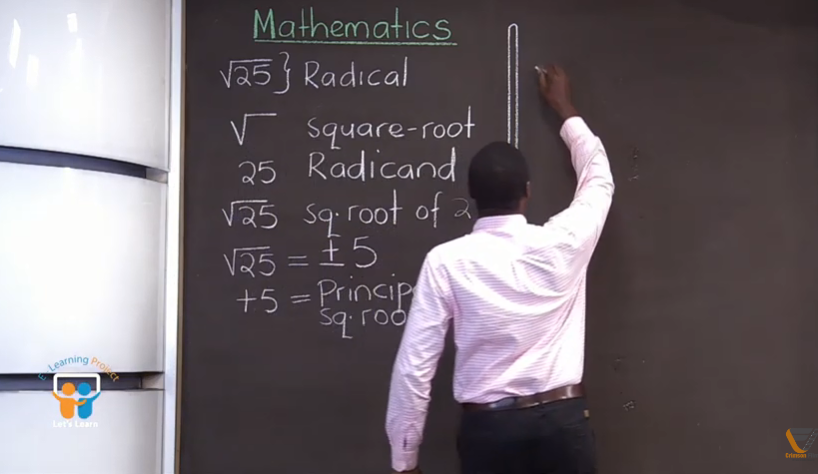 Mathematics
√25 } Radical
√ square-root
25 Radicand
√25 sq. root of 2
√25 = ±5
+5 = Princip
sq. roo
E-Learning Project
Let's Learn